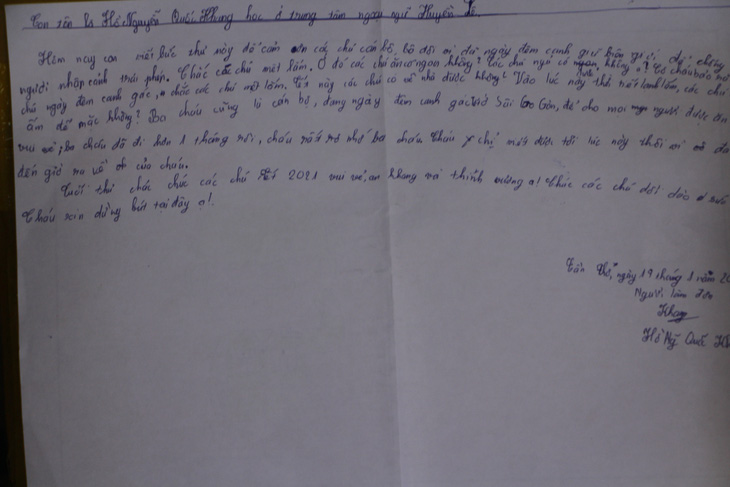 Con tên là Hồ Nguyễn Quốc Khang học ở trung tâm ngoại ngữ Huyền
Hôm nay con viết bức thư này để cảm ơn các chú cán bộ, bộ đội ơi đã ngày đêm canh giữ biên giới để chống
người nhập cảnh trái phép. Chắc các chú mệt lắm. Ở đó các chú ăn có ngon không? Các chú ngủ có ngon không ạ? Cô cháu bảo
chú ngày đêm canh gác, chắc các chú mệt lắm. Tết này các chú có về nhà được không? Vào lúc này thời tiết lạnh lắm, các chú
ấm để mặc không? Ba cháu cũng là cán bộ, đang ngày đêm canh gác ở Sài Gòn, để cho mọi người được
vui vẻ, ba cháu đã đi hơn 1 tháng rồi, cháu rất nhớ ba cháu. Cháu chỉ viết được tới lúc này thôi vì đã
đến giờ của cháu.
Cuối thư cháu chúc các chú tết 2021 vui vẻ, an khang và thịnh vượng ạ! Chúc các chú dồi dào sức
Cháu xin dừng bút tại đây ạ!.
ngày 19 tháng 1 năm 20
Người làm đơn
Khang
Hồ Ng Quốc